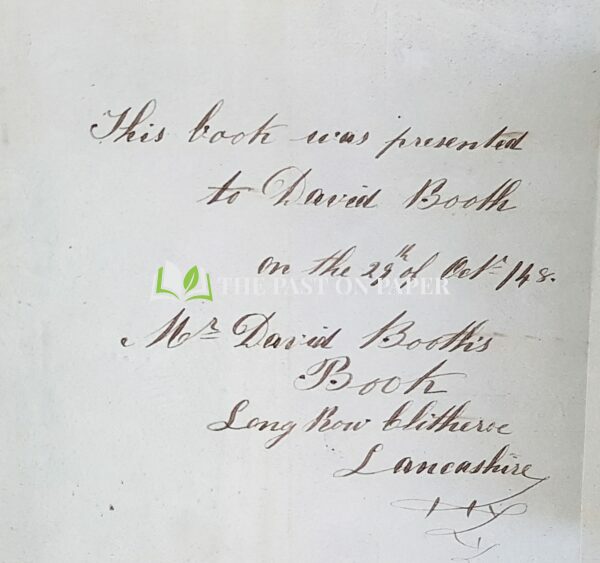 This book was presented
to David Booth
on the 29th of Octr /48.
THE PAST ON PAPER
Mr David Booth's
Book
Long Row Clitheroe
Lancashire